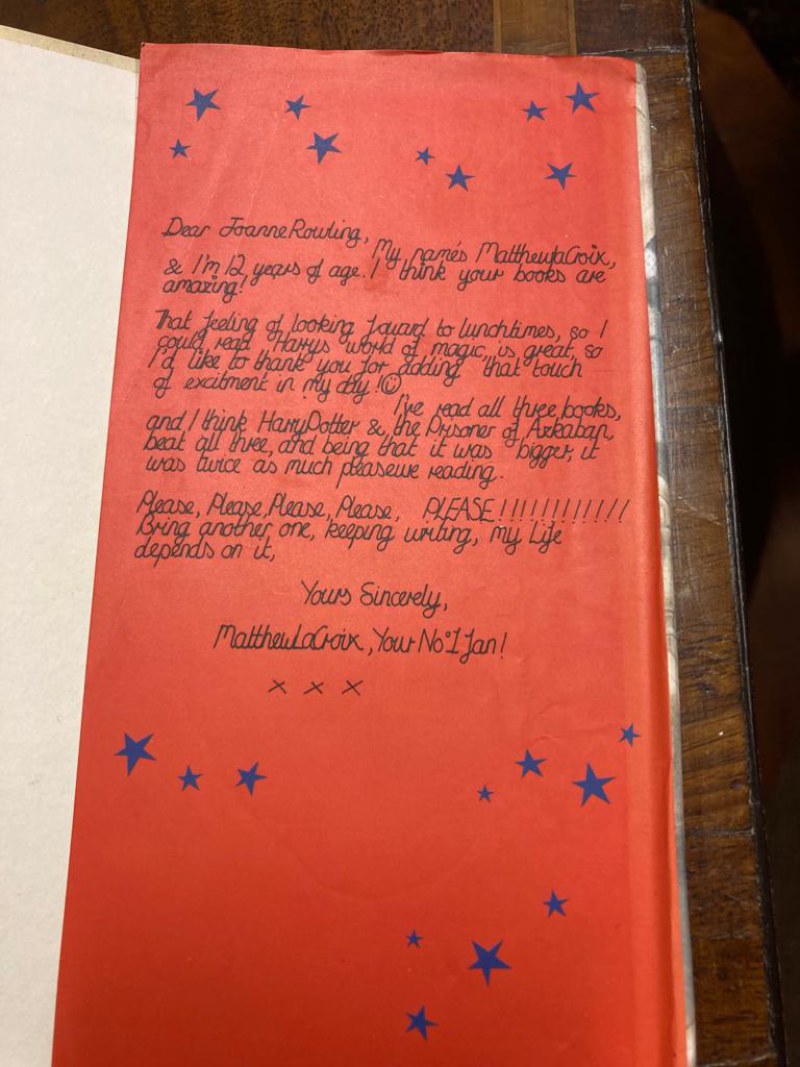 Dear Joanne Rowling,
My name's Matthew LaCroix,
& I'm 12 years of age. I think your books are
amazing!
That feeling of looking foward to lunchtimes, so I
could read Harrys world of magic, is great, so
I'd like to thank you for adding that touch
of excitment in my day! ☺
I've read all three books,
and I think Harry Potter & the Prisoner of Azkaban,
beat all three, and being that it was bigger, it
was twice as much pleasure reading.
Please, Please, Please, Please, PLEASE!!!!!!!!!!!!
Bring another one, keeping writing, my Life
depends on it,
Yours Sincerely,
Matthew LaCroix, Your No°1 fan!
x x x